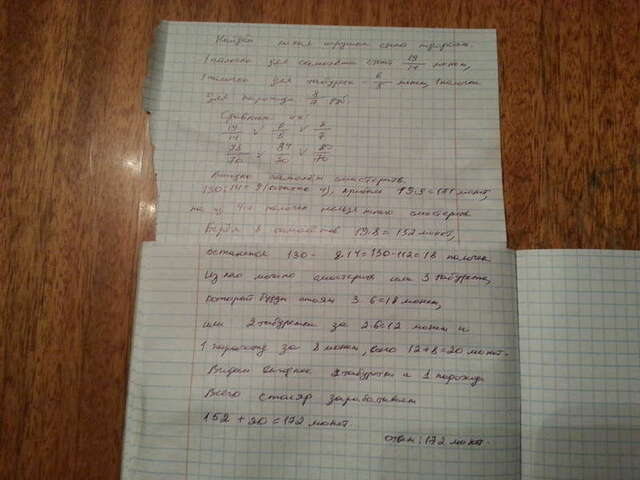 Найдем какая игрушка
1 палочка для самолёта стоит 19/14 монет,
1 палочка для табурета - 6/5 монет, 1 палочка
для парохода 8/7
Сравним их:
19/14 v 6/5 v 8/7
95/70 v 84/70 v 80/70
Выгодно самолёты смастерить
130:14=9 (остаток 4), 19·9=171 монет,
но из 4-х палочек нельзя смастерить
Берём 8 самолётов 19·8=152 монет,
останется 130 - 8·14=130-112=18 палочек
Из них можно смастерить или 3 табурета,
которые будут стоить 3·6=18 монет,
или 2 табуретки за 2·6=12 монет и
1 пароход за 8 монет, всего 12+8=20 монет.
Видим выгоднее 2 табуретки и 1 пароход
Всего столяр заработает
152+20=172 монет
ответ: 172 монет.